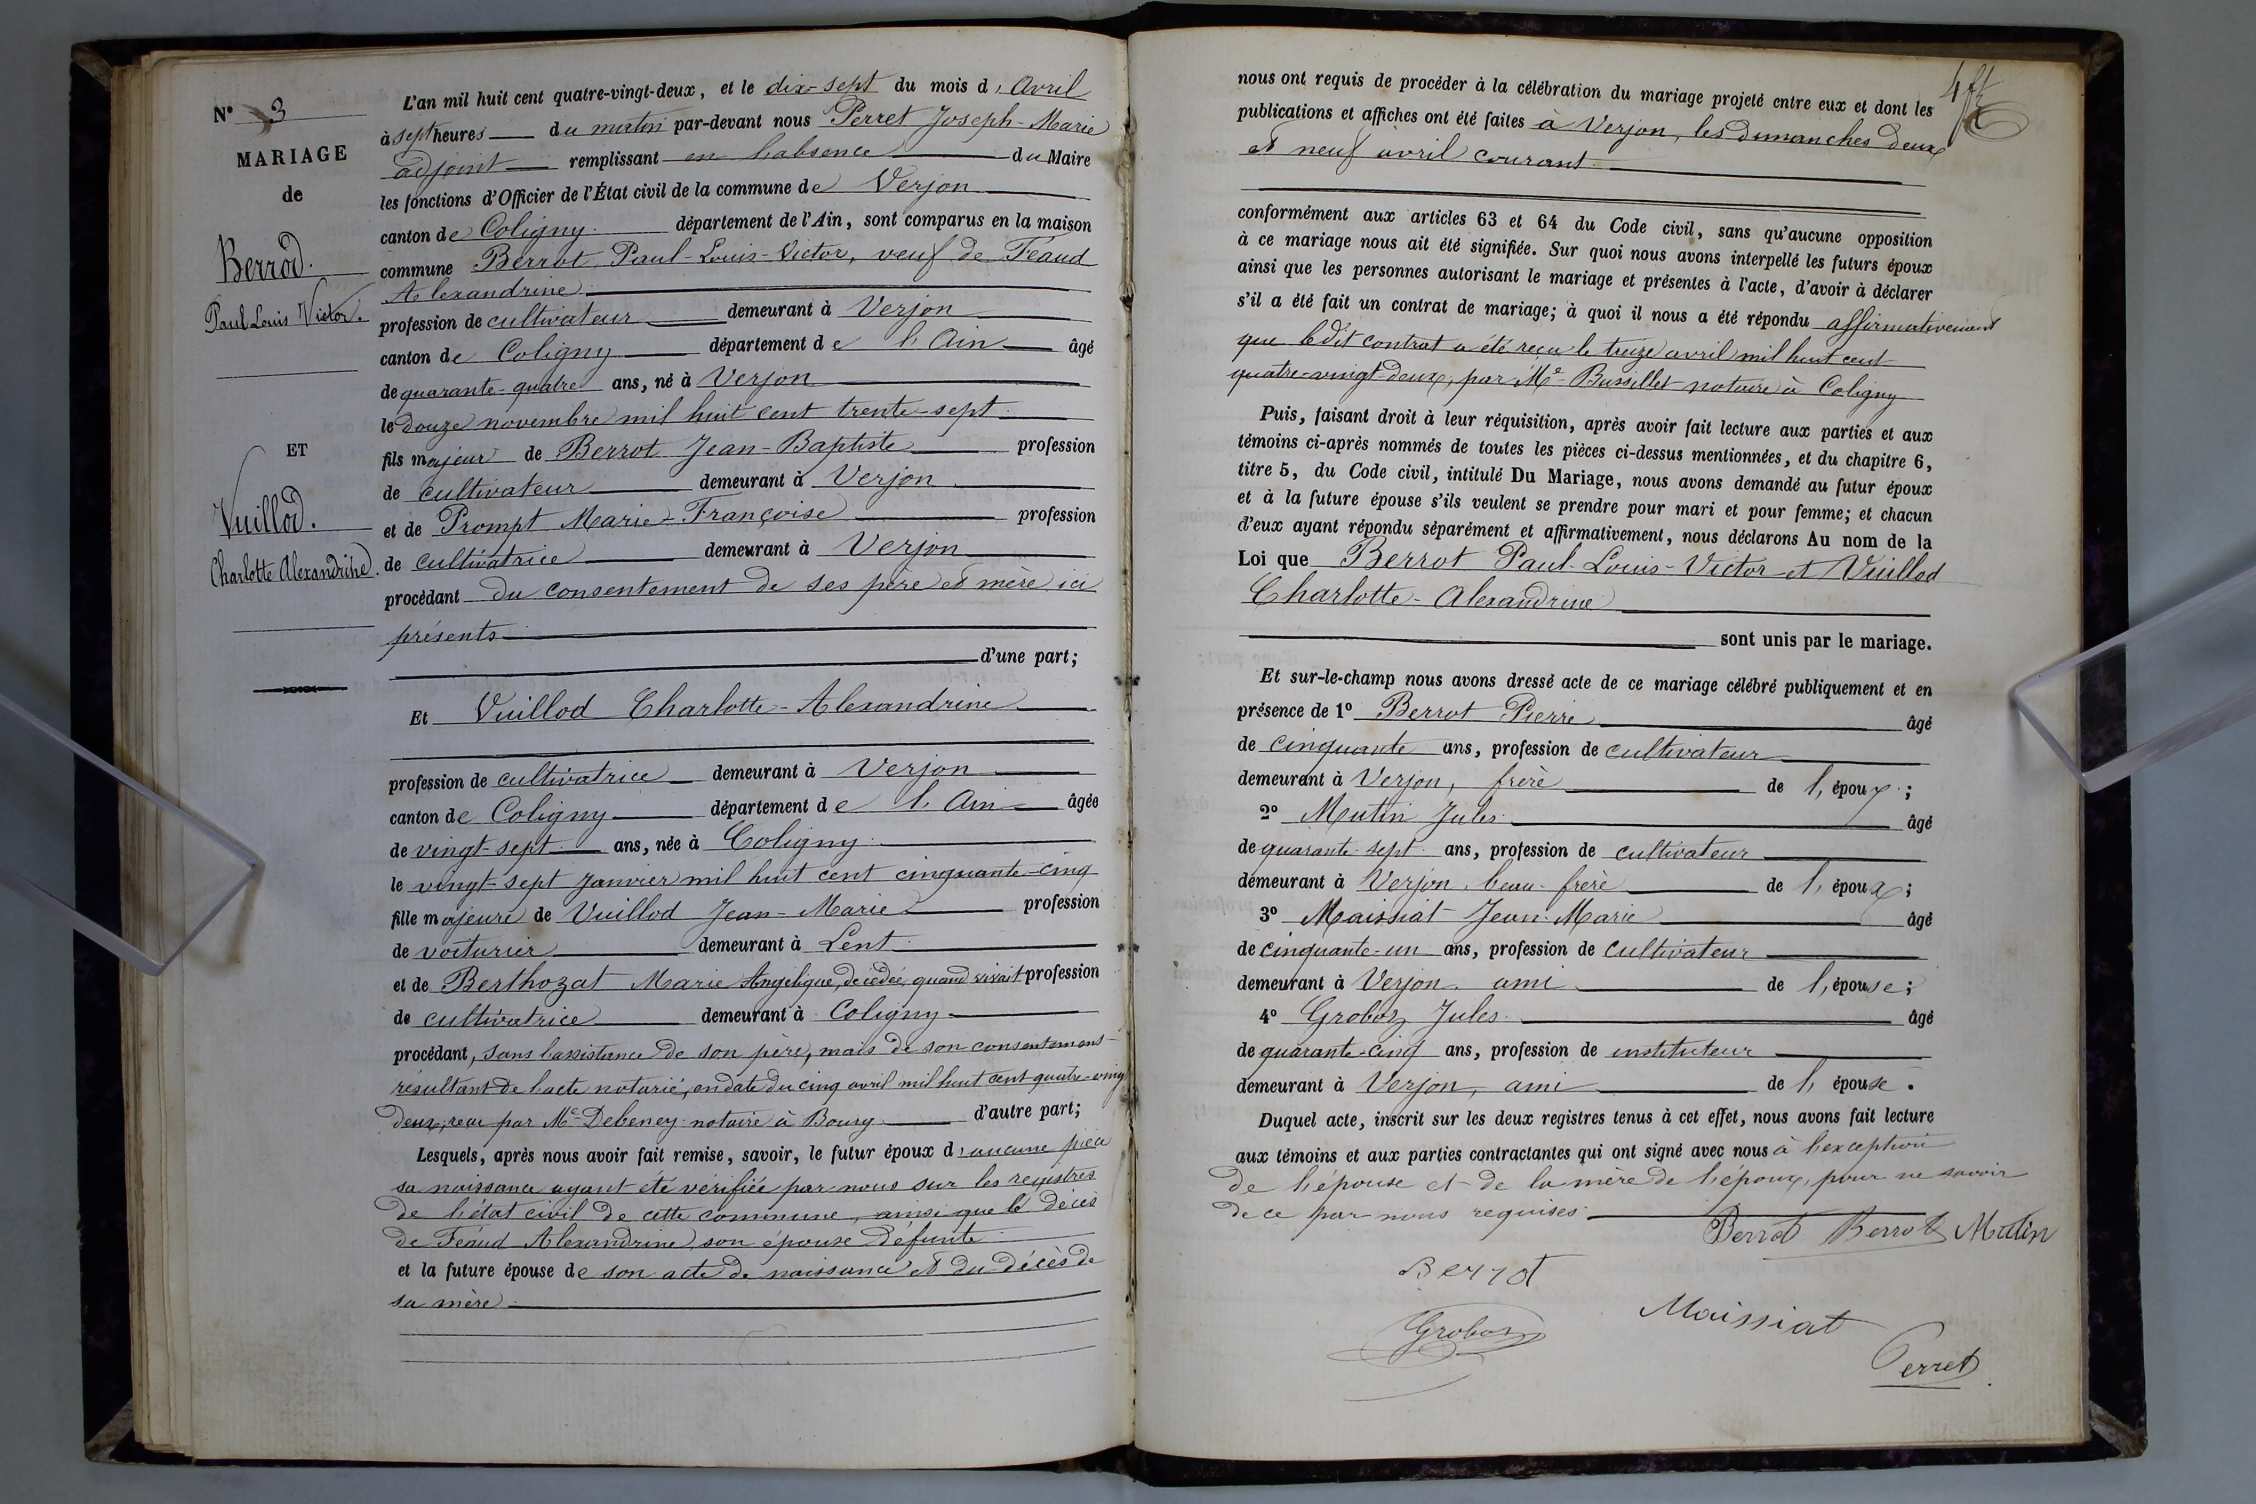 N° 3
MARIAGE
de
Berrod.
Paul Louis Victor.
ET
Vuillod.
Charlotte Alexandrine.
L'an mil huit cent quatre-vingt-deux, et le dix-sept du mois d'Avril
à sept heures du matin par-devant nous Perret Joseph-Marie
adjoint remplissant en l'absence du Maire
les fonctions d'Officier de l'État civil de la commune de Verjon
canton de Coligny département de l'Ain, sont comparus en la maison
commune Berrot Paul-Louis-Victor, veuf de Féaud
Alexandrine
profession de cultivateur demeurant à Verjon
canton de Coligny département de l'Ain âgé
de quarante-quatre ans, né à Verjon
le douze novembre mil huit cent trente-sept
fils majeur de Berrot Jean-Baptiste profession
de cultivateur demeurant à Verjon
et de Prompt Marie-Françoise profession
de cultivatrice demeurant à Verjon
procédant du consentement de ses père et mère ici
présents
d'une part;
Et Vuillod Charlotte-Alexandrine
profession de cultivatrice demeurant à Verjon
canton de Coligny département de l'Ain âgée
de vingt-sept ans, née à Coligny
le vingt-sept Janvier mil huit cent cinquante-cinq
fille majeure de Vuillod Jean-Marie profession
de voiturier demeurant à Lent
et de Berthozat Marie Angelique, décédée, quand vivait profession
de cultivatrice demeurant à Coligny
procédant, sans l'assistance de son père, mais de son consentement
résultant de l'acte notarié, en date du cinq avril mil huit cent quatre-vingt
deux, reçu par Me Debeney notaire à Bourg d'autre part;
Lesquels, après nous avoir fait remise, savoir, le futur époux d'aucune pièce
sa naissance ayant été vérifiée par nous sur les registres
de l'état civil de cette commune, ainsi que le décès
de Féaud Alexandrine, son épouse défunte
et la future épouse de son acte de naissance et du décès de
sa mère
nous ont requis de procéder à la célébration du mariage projeté entre eux et dont les
publications et affiches ont été faites à Verjon, les dimanches deux
et neuf avril courant
conformément aux articles 63 et 64 du Code civil, sans qu'aucune opposition
à ce mariage nous ait été signifiée. Sur quoi nous avons interpellé les futurs époux
ainsi que les personnes autorisant le mariage et présentes à l'acte, d'avoir à déclarer
s'il a été fait un contrat de mariage; à quoi il nous a été répondu affirmativement
que ledit contrat a été reçu le treize avril mil huit cent
quatre-vingt-deux, par Me Bussillet notaire à Coligny
Puis, faisant droit à leur réquisition, après avoir fait lecture aux parties et aux
témoins ci-après nommés de toutes les pièces ci-dessus mentionnées, et du chapitre 6,
titre 5, du Code civil, intitulé Du Mariage, nous avons demandé au futur époux
et à la future épouse s'ils veulent se prendre pour mari et pour femme; et chacun
d'eux ayant répondu séparément et affirmativement, nous déclarons Au nom de la
Loi que Berrot Paul-Louis-Victor et Vuillod
Charlotte-Alexandrine
sont unis par le mariage.
Et sur-le-champ nous avons dressé acte de ce mariage célébré publiquement et en
présence de 1° Berrot Pierre âgé
de cinquante ans, profession de cultivateur
demeurant à Verjon, frère de l'époux;
2° Mutin Jules âgé
de quarante-sept ans, profession de cultivateur
demeurant à Verjon, beau-frère de l'époux;
3° Maissiat Jean-Marie âgé
de cinquante-un ans, profession de cultivateur
demeurant à Verjon, ami de l'épouse;
4° Groboz Jules âgé
de quarante-cinq ans, profession de instituteur
demeurant à Verjon, ami de l'épouse.
Duquel acte, inscrit sur les deux registres tenus à cet effet, nous avons fait lecture
aux témoins et aux parties contractantes qui ont signé avec nous à l'exception
de l'épouse et de la mère de l'époux, pour ne savoir
de ce par nous requises
Berrot Berrot Mutin
Berrot
Groboz
Maissiat
Perret